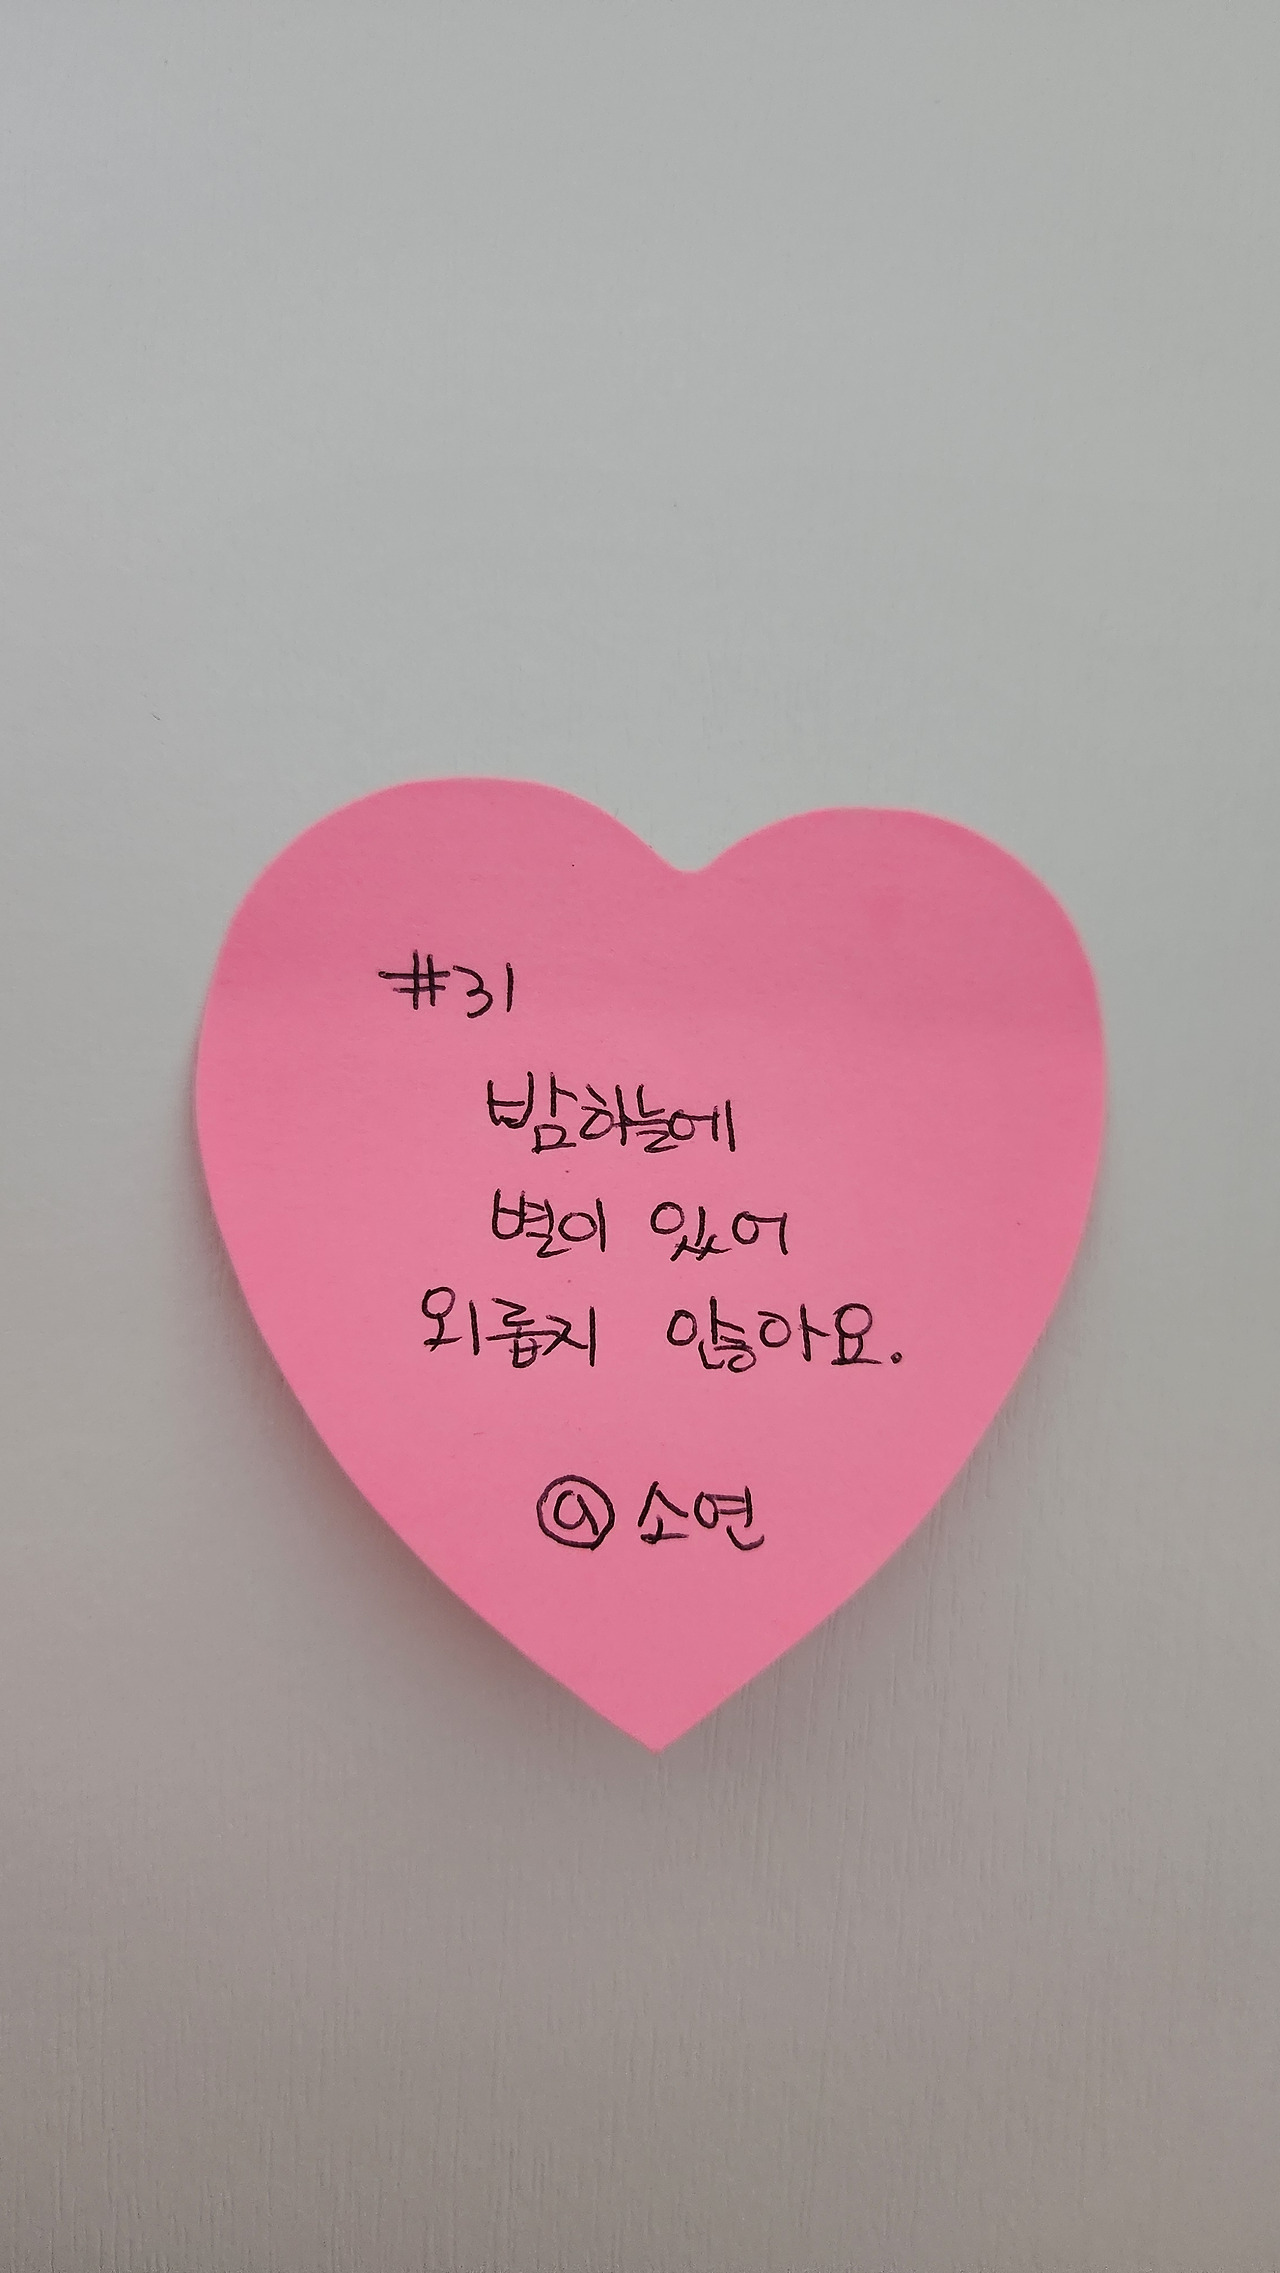 #31
밤하늘에
별이 있어
외롭지 않아요.
@소연